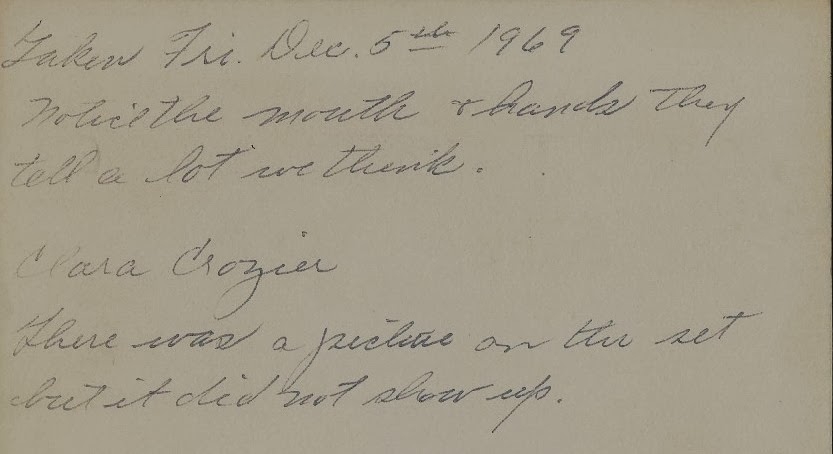 Taken Fri. Dec. 5th 1969
Notice the mouth & hands they
tell a lot we think.
Clara Crozier
There was a picture on the set
but it did not show up.